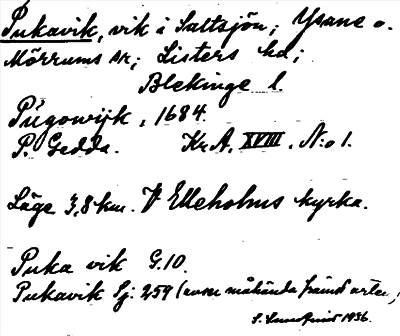 Pukavik, vik i Saltsjön; Ysane o.
Mörrums snr; Listers hd;
Blekinge l.
Pugowijk, 1684.
P. Gedda. Kr.A. XVIII. N:o 1.
Läge 3,8 km. V Elleholms kyrka.
Puka vik G.10.
Pukavik Sj: 259 (avser måhända
1936.